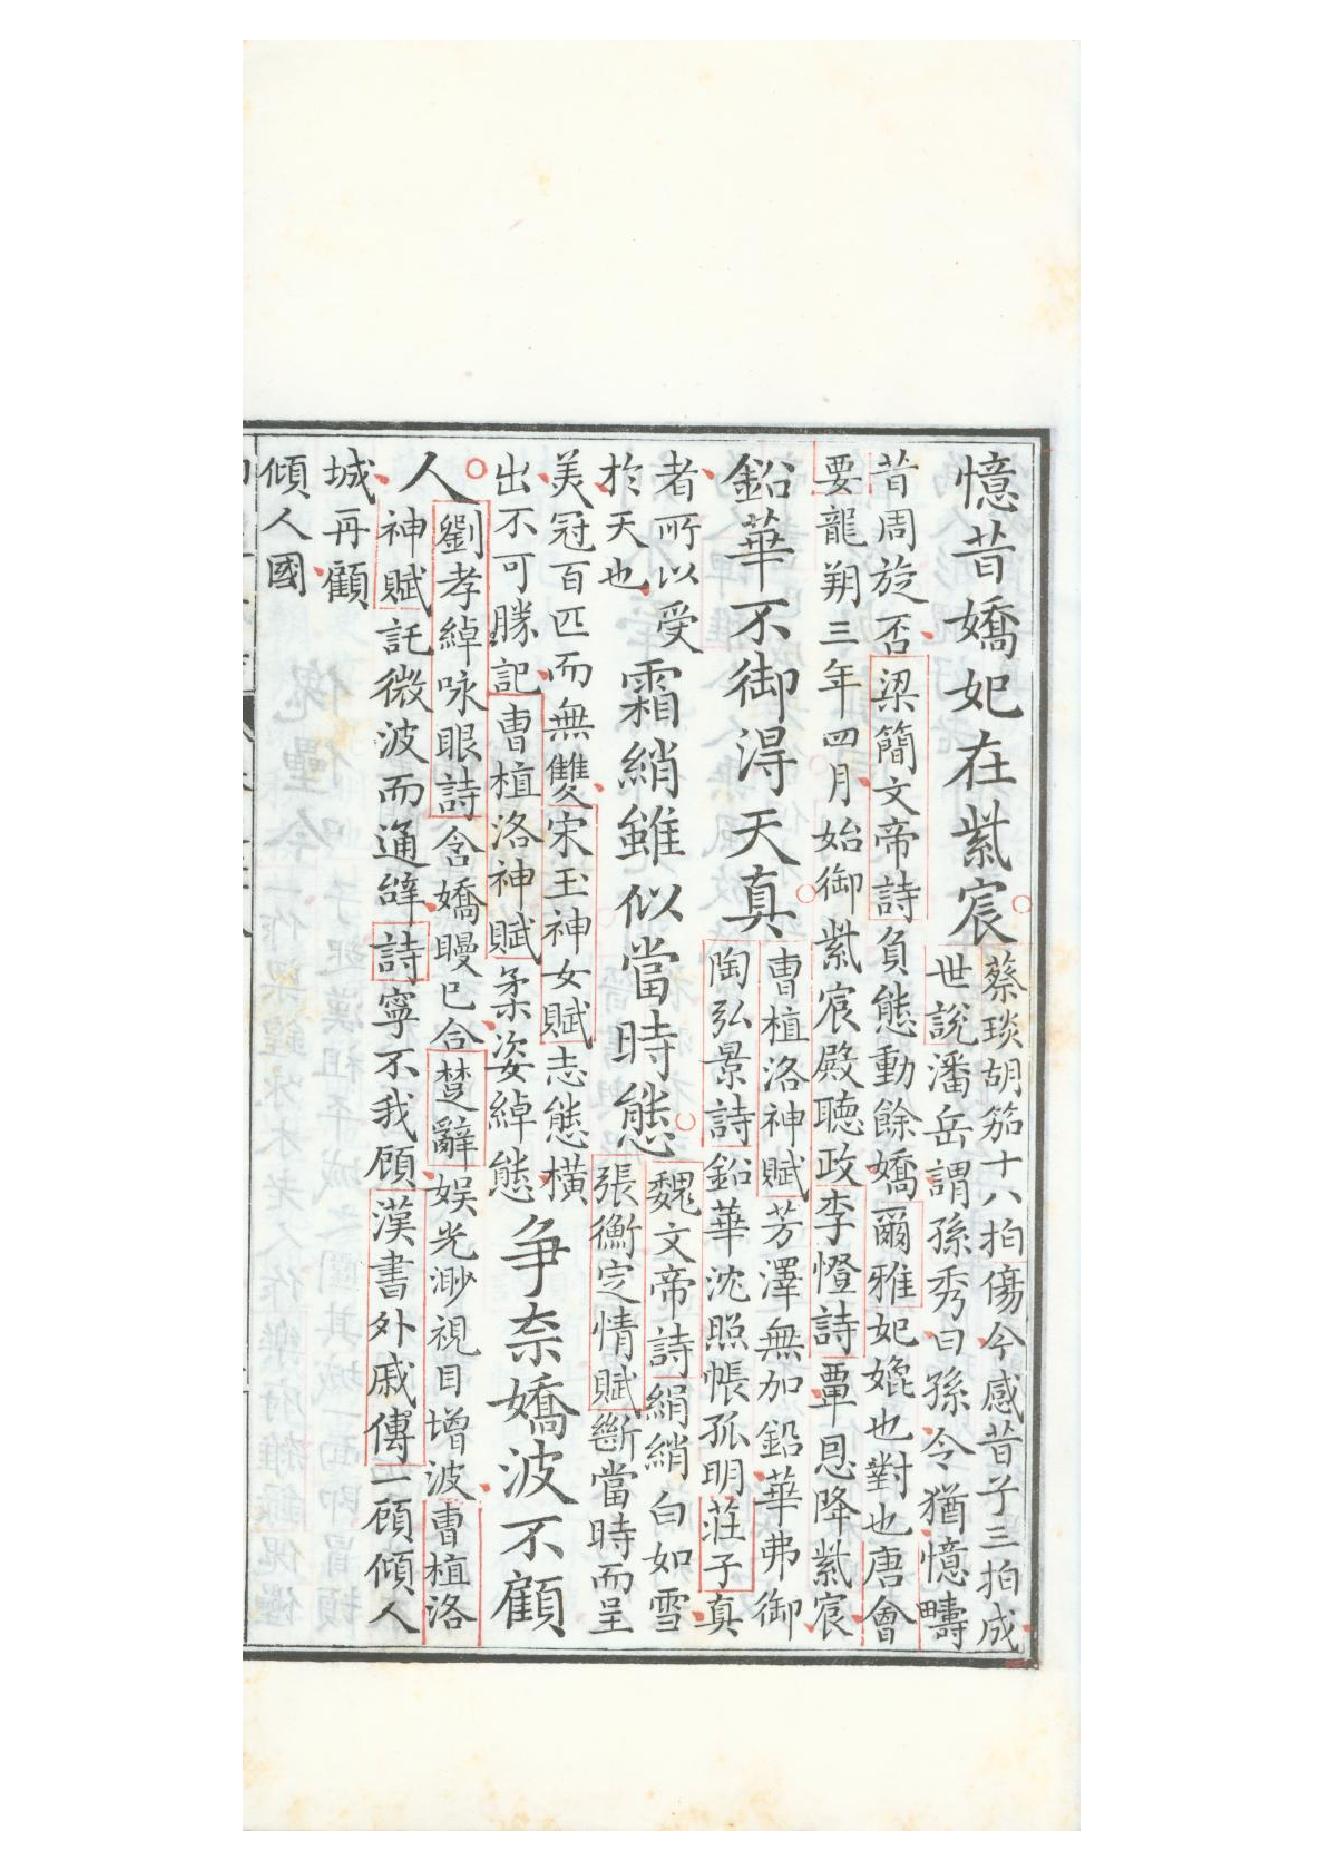 憶昔嬌妃在紫宸
蔡琰胡笳十八拍傷今感昔子三拍成
世說潘岳謂孫秀曰孫令猶憶疇
昔周旋否梁簡文帝詩負態動餘嬌爾雅妃媲也對也唐會
要龍朔三年四月始御紫宸殿聴政李憕詩覃恩降紫宸
鉛華不御淂天真
曹植洛神賦芳澤無加鉛華弗御
陶弘景詩鉛華沈照帳孤明莊子真
者所以受
於天也
霜綃雖似當時態
魏文帝詩絹綃白如雪
張衡定情賦斷當時而呈
美冠百匹而無雙宋玉神女賦志態橫
出不可勝記曹植洛神賦柔姿綽態
争奈嬌波不顧
人
劉孝綽咏眼詩含嬌矊已合楚辭娱光渺視目增波曹植洛
神賦託微波而通辝詩寧不我顧漢書外戚傳一顧傾人
城再顧
傾人國